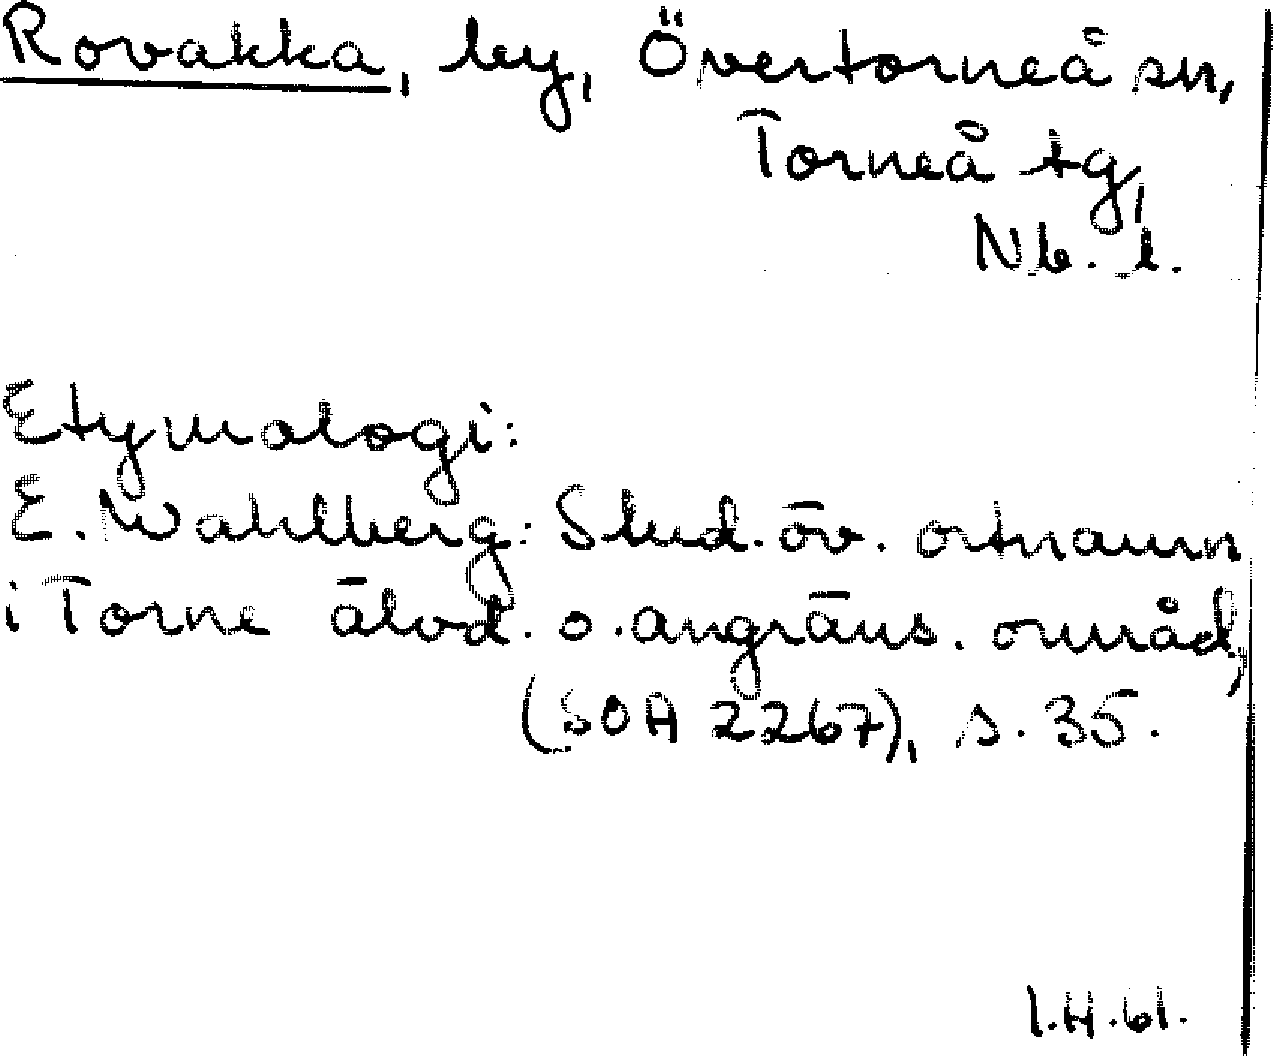 Rovakka, by, Övertorneå sn,
Torneå tg,
Nb. l.
Etymologi:
E. Wahlberg: Stud. öv. ortnamn
i Torne älvd. o. angräns. områd.,
(SOA 2267), s. 35.
I.H.61.